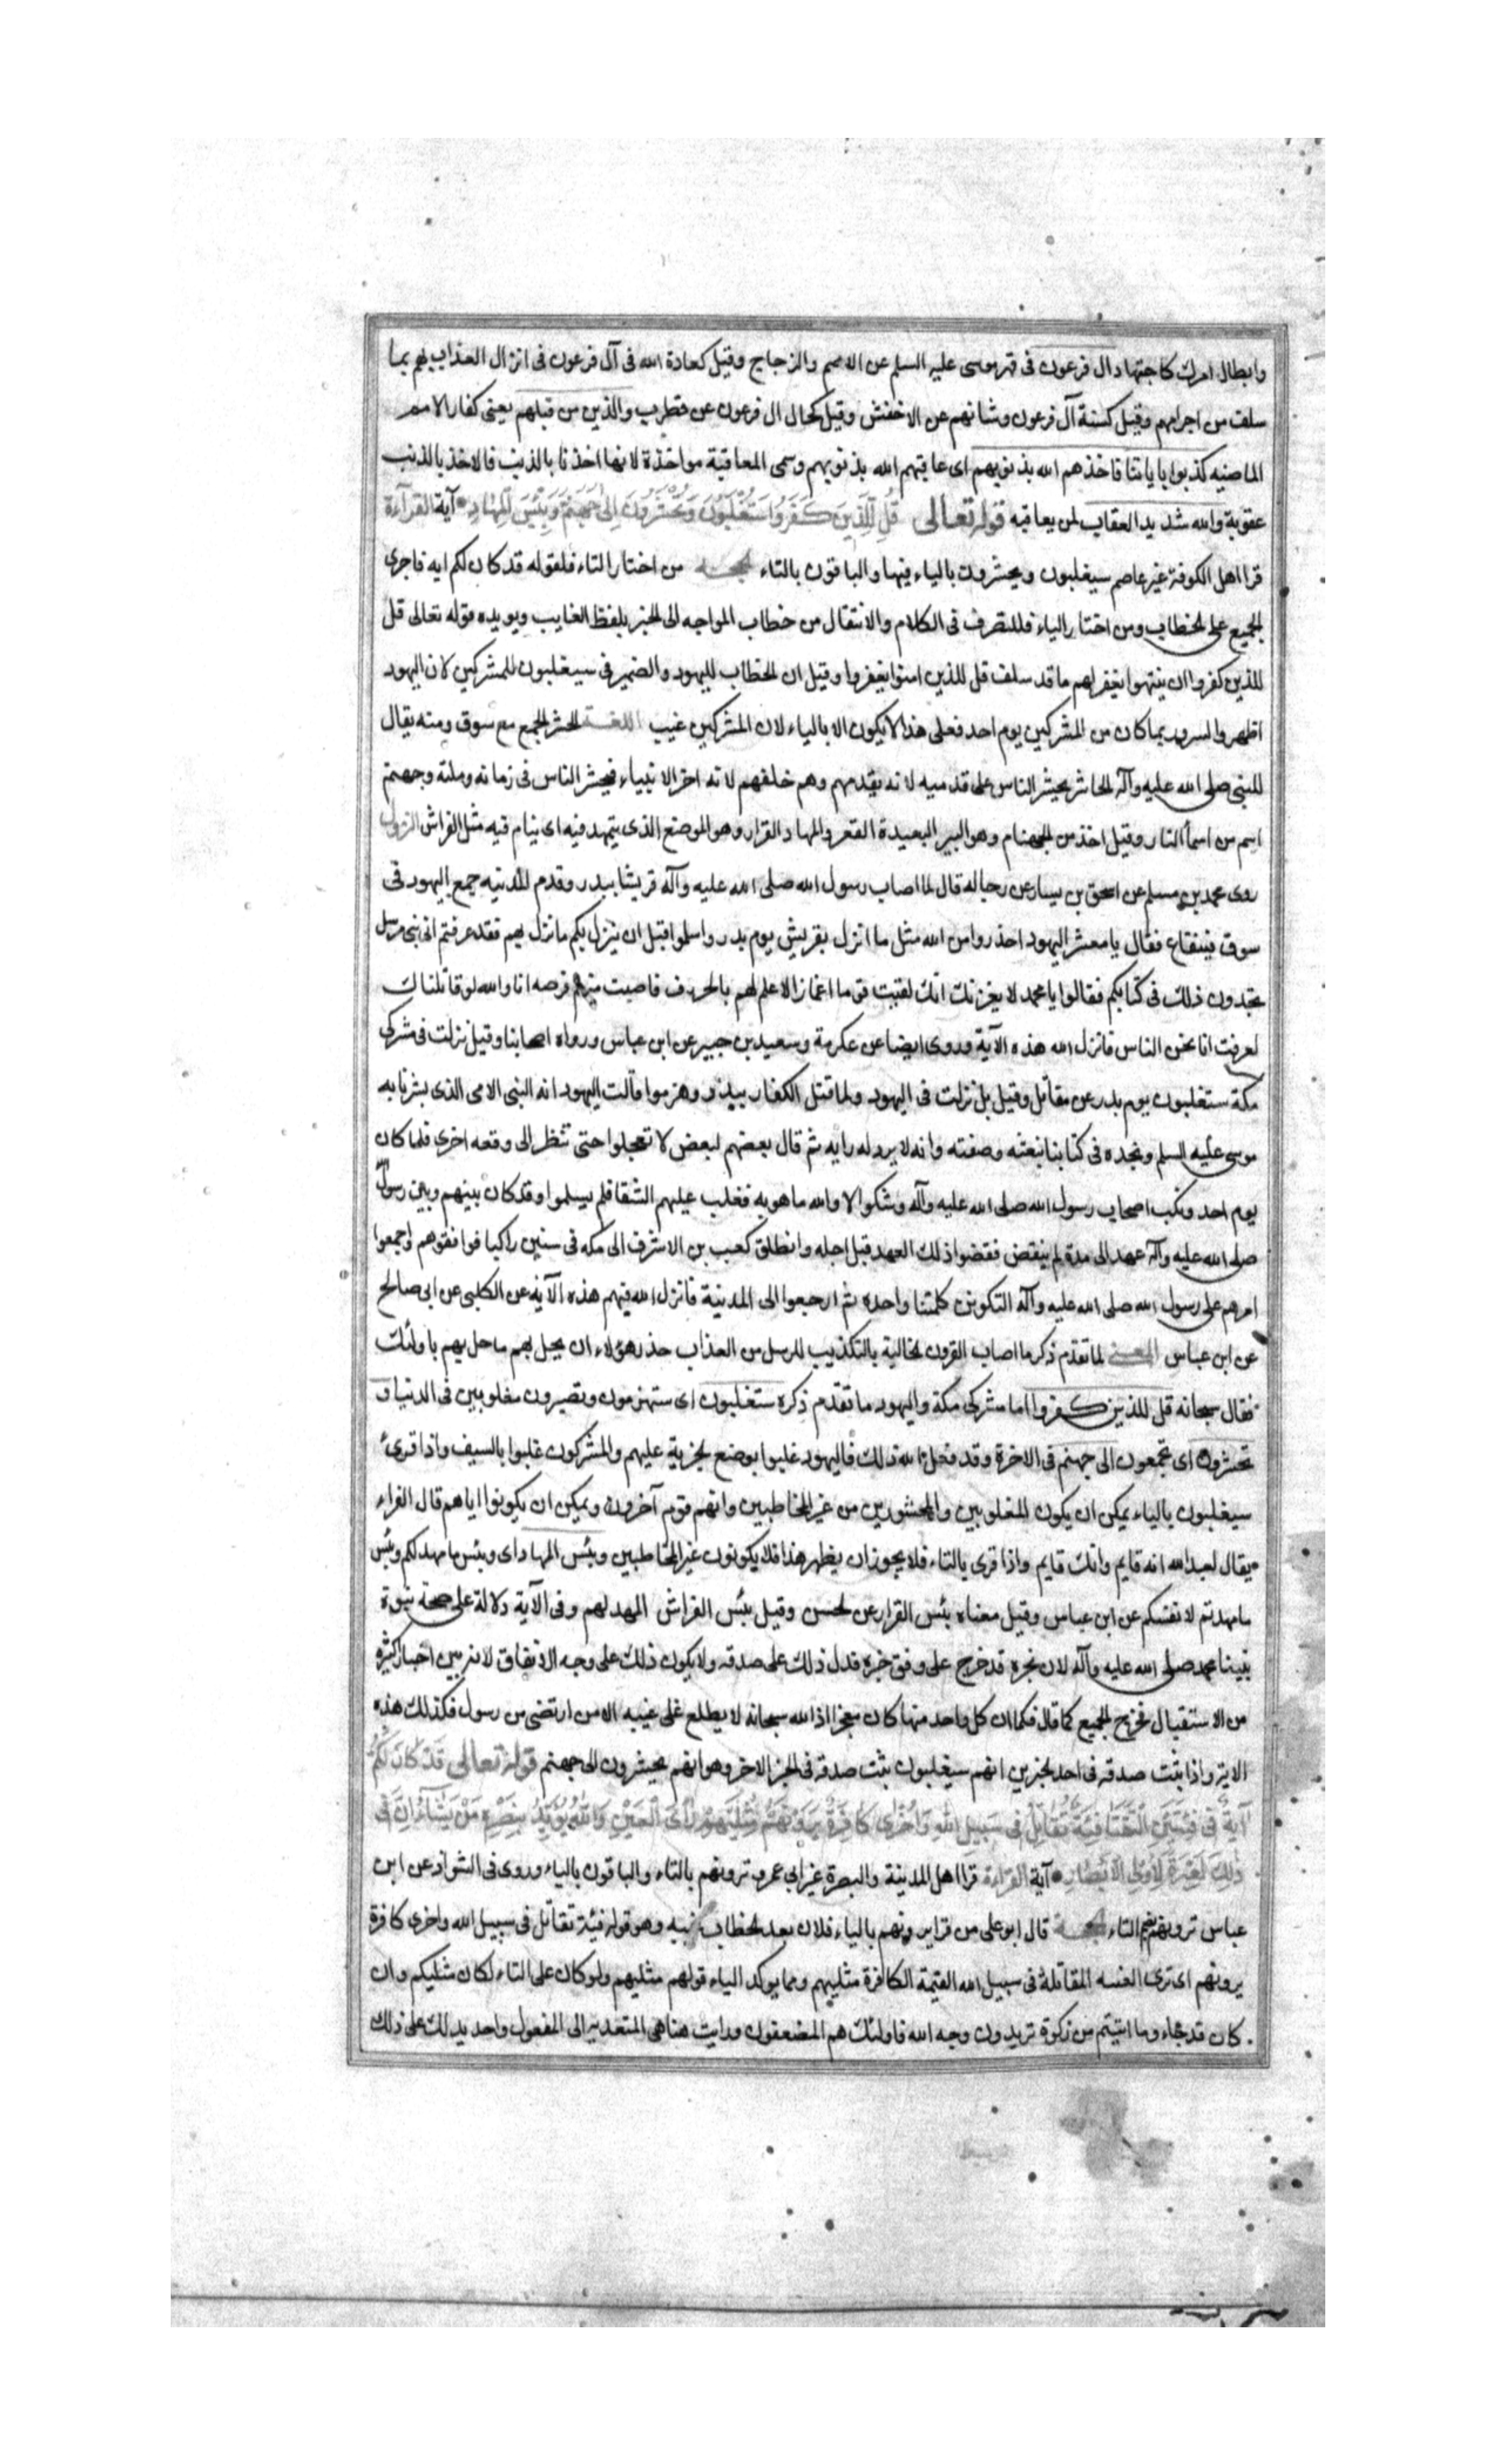 وابطال امرك كاجتهاد ال فرعون فى قهر موسى عليه السلم عن الاصم والزجاج وقيل كعادة الله فى آل فرعون فى انزال العذاب بهم بما
سلف من اجرامهم وقيل كسنة آل فرعون وشانهم عن الاخفش وقيل كحال ال فرعون عن قطرب والذين من قبلهم يعنى كفار الامم
الماضيه كذبوا باياتنا فاخذهم الله بذنوبهم اى عاقبهم الله بذنوبهم وسمى المعاقبة مواخذة لانها اخذنا بالذنب فالاخذ بالذنب
عقوبة والله شديد العقاب لمن يعاقبه قوله تعالى قُل لِلَّذِينَ كَفَرُوا سَتُغْلَبُونَ وَتُحْشَرُونَ اِلى جَهَنَّمَ وَبِئْسَ الْمِهَادِ آية القرآءة
قرا اهل الكوفة غير عاصم سيغلبون ويحشرون بالياء فيها والباقون بالتاء الحجـه من اختار التاء فلقوله قد كان لكم ايه فاجرى
الجميع على الخطاب ومن اختار الياء فللتصرف فى الكلام والانتقال من خطاب المواجه الى الخبر بلفظ الغايب ويويده قوله تعالى قل
للذين كفروا ان ينتهوا يغفر لهم ما قد سلف قل للذين امنوا يغفروا وقيل ان الخطاب لليهود والضمير فى سيغلبون للمشركين لان اليهود
اظهروا السرور بما كان من المشركين يوم احد فعلى هذا لا يكون الا بالياء لان المشركين غيب اللغـة الحشر الجمع مع سوق ومنه يقال
للنبى صلى الله عليه وآله الحاشر يحشر الناس على قدميه لانه يقدمهم وهم خلفهم لانه اخر الانبياء فيحشر الناس فى زمانه وملته وجهنم
اسم من اسمآ النار وقيل اخذ من الجهنام وهو البير البعيدة القعر والمهاد القرار وهو الموضع الذى يتمهد فيه اى ينام فيه مثل الفراش النزول
روى محمد بن مسلم عن اسحق بن يسار عن رجاله قال لما اصاب رسول الله صلى الله عليه وآله قريشا ببدر وقدم المدنيه جمع اليهود فى
سوق قينقاع فقال يا معشر اليهود احذروا من الله مثل ما انزل بقريش يوم بدر واسلموا قبل ان ينزل بكم ما نزل بهم فقد عرفتم انى نبى مرسل
تجدون ذلك فى كتابكم فقالوا يا محمد لا يغرنك انك لقيت قوما اغمارا لا علم لهم بالحرب فاصبت منهم فرصه انا والله لو قاتلناك
لعرفت انا نحن الناس فانزل الله هذه الآية وروى ايضا عن عكرمة وسعيد بن جبير عن ابن عباس ورواه اصحابنا وقيل نزلت فى مشركى
مكة ستغلبون يوم بدر عن مقاتل وقيل بل نزلت فى اليهود ولما قتل الكفار ببدر وهزموا قالت اليهود انه النبى الامى الذى بشرنا به
موسى عليه السلم ونجده فى كتابنا بنعته وصفته وانه لا يرد له رايه ثم قال بعضهم لبعض لا تعجلوا حتى تنظر الى وقعه اخرى فلما كان
يوم احد ونكب اصحاب رسول الله صلى الله عليه وآله وشكوا لا والله ما هو به فغلب عليهم الشقا فلم يسلموا وقد كان بينهم وبين رسول الله
صلى الله عليه وآله عهد الى مدة لم ينقض فنقضوا ذلك العهد قبل اجله وانطلق كعب بن الاشرف الى مكه فى ستين راكبا فوافقوهم واجمعوا
امرهم على رسول الله صلى الله عليه وآله التكونن كلمتنا واحدة ثم ارجعوا الى المدنية فانزل الله فيهم هذه الآية عن الكلبى عن ابى صالح
عن ابن عباس المعنى لما تقدم ذكر ما اصاب القرون الخالية بالتكذيب للرسل من العذاب حذر هؤلاء ان يحل بهم ما حل بهم باولئك
فقال سبحانه قل للذين كفروا اما مشركى مكة واليهود ما تقدم ذكره ستغلبون اى ستهزمون وتصيرون مغلوبين فى الدنيا و
تحشرون اى تجمعون الى جهنم فى الاخرة وقد فعل الله ذلك فاليهود غلبوا بوضع الجزية عليهم والمشركون غلبوا بالسيف واذا قرئ
سيغلبون بالياء يمكن ان يكون المغلوبين والمحشورين من غير المخاطبين وانهم قوم آخرون ويمكن ان يكونوا اياهم قال الفراء
يقال لعبد الله انه قايم وانك قايم واذا قرى بالتاء فلا يجوز ان يظهر هذا فلا يكونون غير المخاطبين وبئس المهاد اى وبئس ما مهد لكم وبئس
ما مهدتم لانفسكم عن ابن عباس وقيل معناه بئس القرار عن الحسن وقيل بئس الفراش المهد لهم وفى الآية دلالة على صحة نبوة
نبينا محمد صلى الله عليه وآله لان مخبره قد خرج على وفق خبره فدل ذلك على صدقه ولا يكون ذلك على وجه الاتفاق لانه بين اخبارا كثيرة
من الاستقبال فخرج الجميع كما قال فكما ان كل واحد منها كان معجزا اذ الله سبحانه لا يطلع على غيبه الا من ارتضى من رسول فكذلك هذه
الاية واذا ثبت صدقه فى احد الخبرين انهم سيغلبون ثبت صدقه فى الخبر الاخر وهو انهم يحشرون الى جهنم قوله تعالى قَدْ كَانَ لَكُمْ
آيَةٌ فى فِئَتَيْنِ الْتَقَتَا فِئَةٌ تُقَاتِلُ فى سَبِيلِ اللهِ وَاُخْرٰى كَافِرَةٌ يَرَوْنَهُمْ مِثْلَيْهِمْ رَأىَ الْعَيْنِ وَاللهُ يُؤَيِّدُ بِنَصْرِهِ مَنْ يَشَاءُ اِنَّ فى
ذٰلِكَ لَعِبْرَةً لِاُولِى الْاَبْصَارِ آية القراءة قرا اهل المدينة والبصرة غير ابى عمرو ترونهم بالتاء والباقون بالياء وروى فى الشواذ عن ابن
عباس ترونهم بضم التاء الحجـة قال ابو على من قرا يرونهم بالياء فلان بعد الخطاب غيبه وهو قوله فئة تقاتل فى سبيل الله واخرى كافرة
يرونهم اى ترى الفئسه المقاتلة فى سبيل الله الفئة الكافرة مثليهم ومما يوكد الياء قولهم مثليهم ولو كان على التاء لكان مثليكم وان
كان قد جاء وما اتيتم من زكوة تريدون وجه الله فاولئك هم المضعفون ورايت هنا هى المتعدية الى المفعول واحد يدلك على ذلك